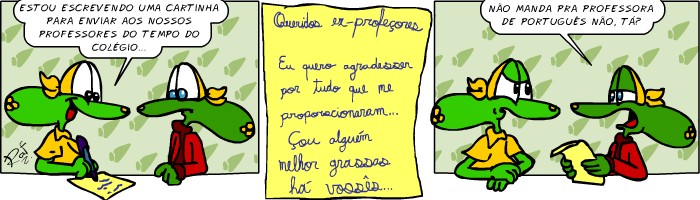 ESTOU ESCREVENDO UMA CARTINHA
PARA ENVIAR AOS NOSSOS
PROFESSORES DO TEMPO DO
COLÉGIO...
Queridos ex-profeçores
Eu quero agradesser
por tudo que me
proporcionaram...
Çou alguém
melhor grassas
há voosês...
NÃO MANDA PRA PROFESSORA
DE PORTUGUÊS NÃO, TÁ?